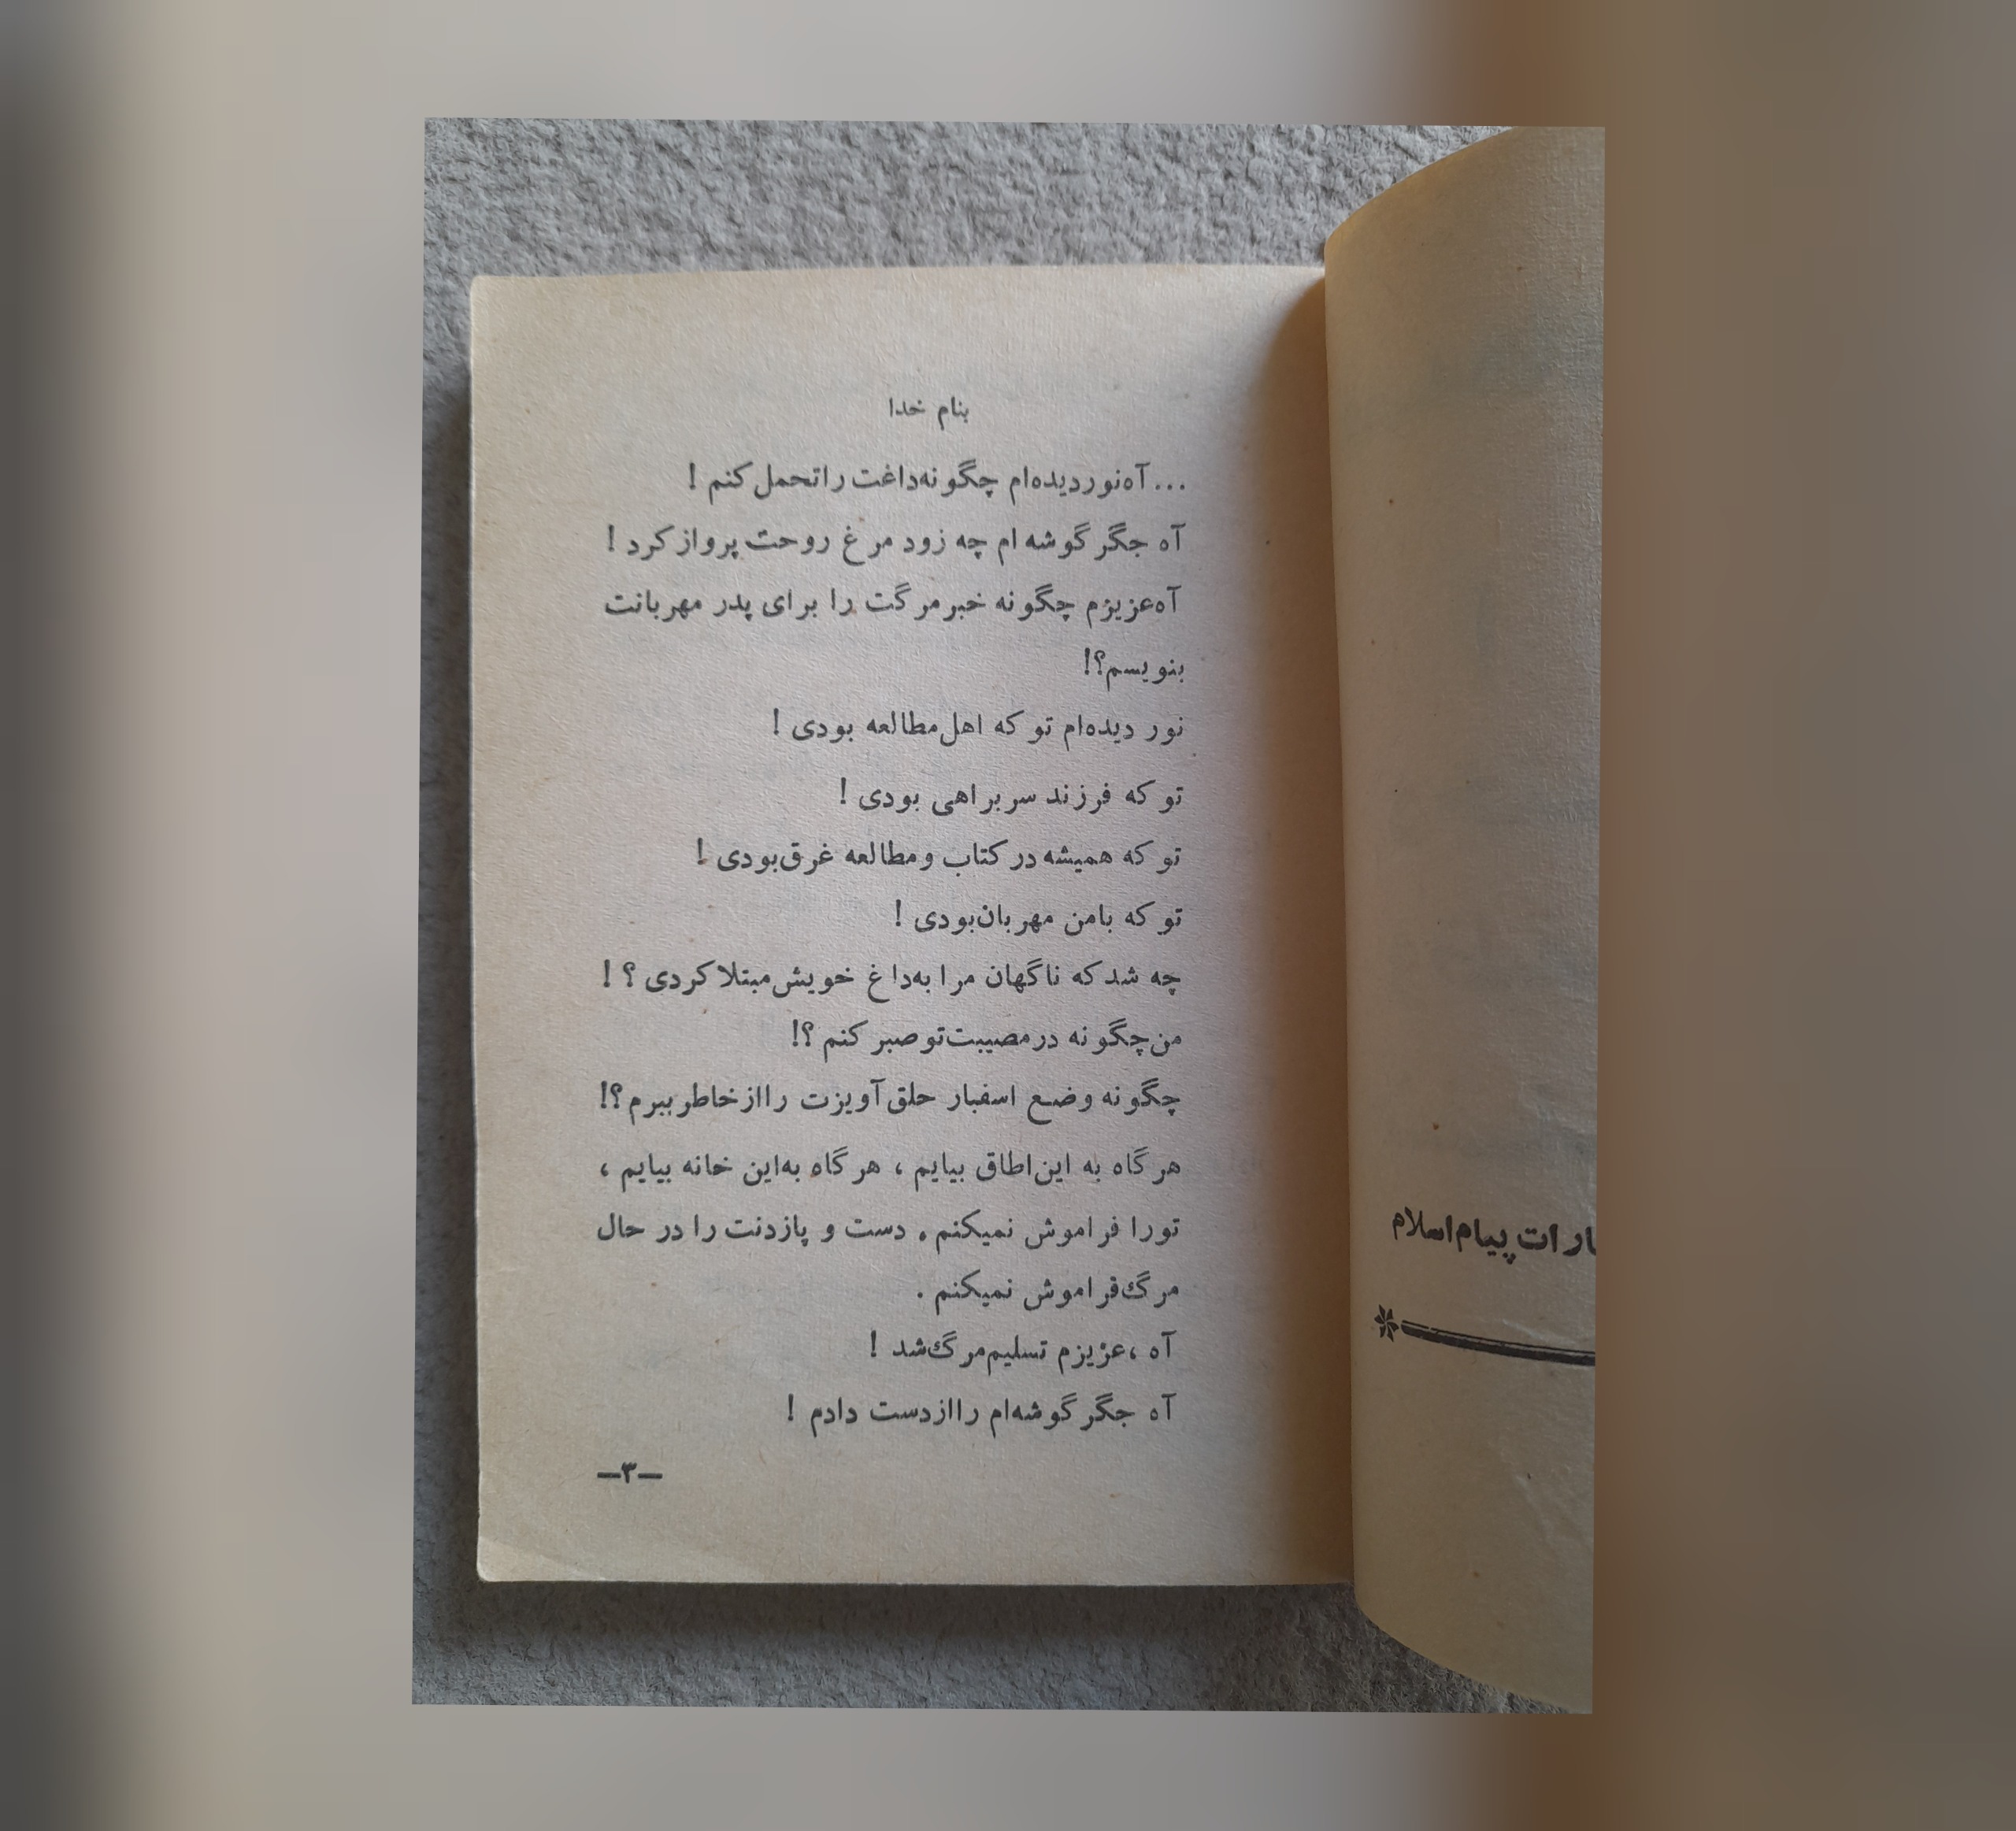 بنام خدا
... آه‌نوردیده‌ام چگونه‌داغت راتحمل کنم !
آه جگر گوشه ام چه زود مرغ روحت پرواز کرد !
آه‌عزیزم چگونه خبر مرگت را برای پدر مهربانت
بنویسم؟!
نور دیده‌ام تو که اهل‌مطالعه بودی !
تو که فرزند سربراهی بودی !
تو که همیشه در کتاب ومطالعه غرق‌بودی !
تو که بامن مهربان‌بودی !
چه شد که ناگهان مرا به‌داغ خویش‌مبتلا کردی ؟ !
من‌چگونه درمصیبت‌تو صبر کنم ؟!
چگونه وضع اسفبار حلق‌آویزت رااز خاطر ببرم ؟!
هر گاه به این‌اطاق بیایم ، هر گاه به‌این خانه بیایم ،
تورا فراموش نمیکنم . دست و پازدنت را در حال
مرگ‌فراموش نمیکنم .
آه ،عزیزم تسلیم‌مرگ‌شد !
آه جگر گوشه‌ام رااز‌دست دادم !
—۳—
پیام‌اسلام